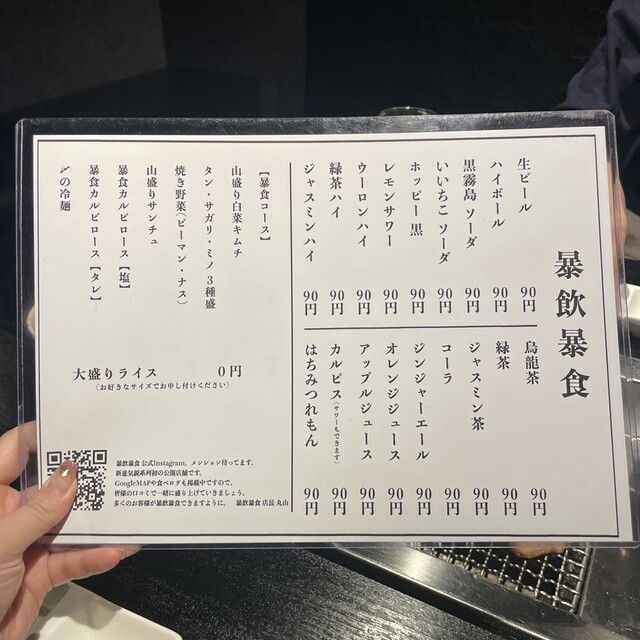 暴飲暴食
生ビール 90円
ハイボール 90円
黒霧島 ソーダ 90円
いいちこ ソーダ 90円
ホッピー 黒 90円
レモンサワー 90円
ウーロンハイ 90円
緑茶ハイ 90円
ジャスミンハイ 90円
烏龍茶 90円
緑茶 90円
ジャスミン茶 90円
コーラ 90円
ジンジャーエール 90円
オレンジジュース 90円
アップルジュース 90円
カルピス(サワーもできます) 90円
はちみつれもん 90円
【暴食コース】
山盛り白菜キムチ
タン・サガリ・ミノ 3種盛
焼き野菜(ピーマン・ナス)
山盛りサンチュ
暴食カルビロース【塩】
暴食カルビロース【タレ】
〆の冷麺
大盛りライス 0円
(お好きなサイズでお申し付けください)
暴飲暴食 公式Instagram、メンション待ってます。
新進気鋭系列初の公開店舗です。
GoogleMAPや食べログも掲載中ですので、
皆様の口コミで一緒に盛り上げていきましょう。
多くのお客様が暴飲暴食できますように。 暴飲暴食 店長 丸山